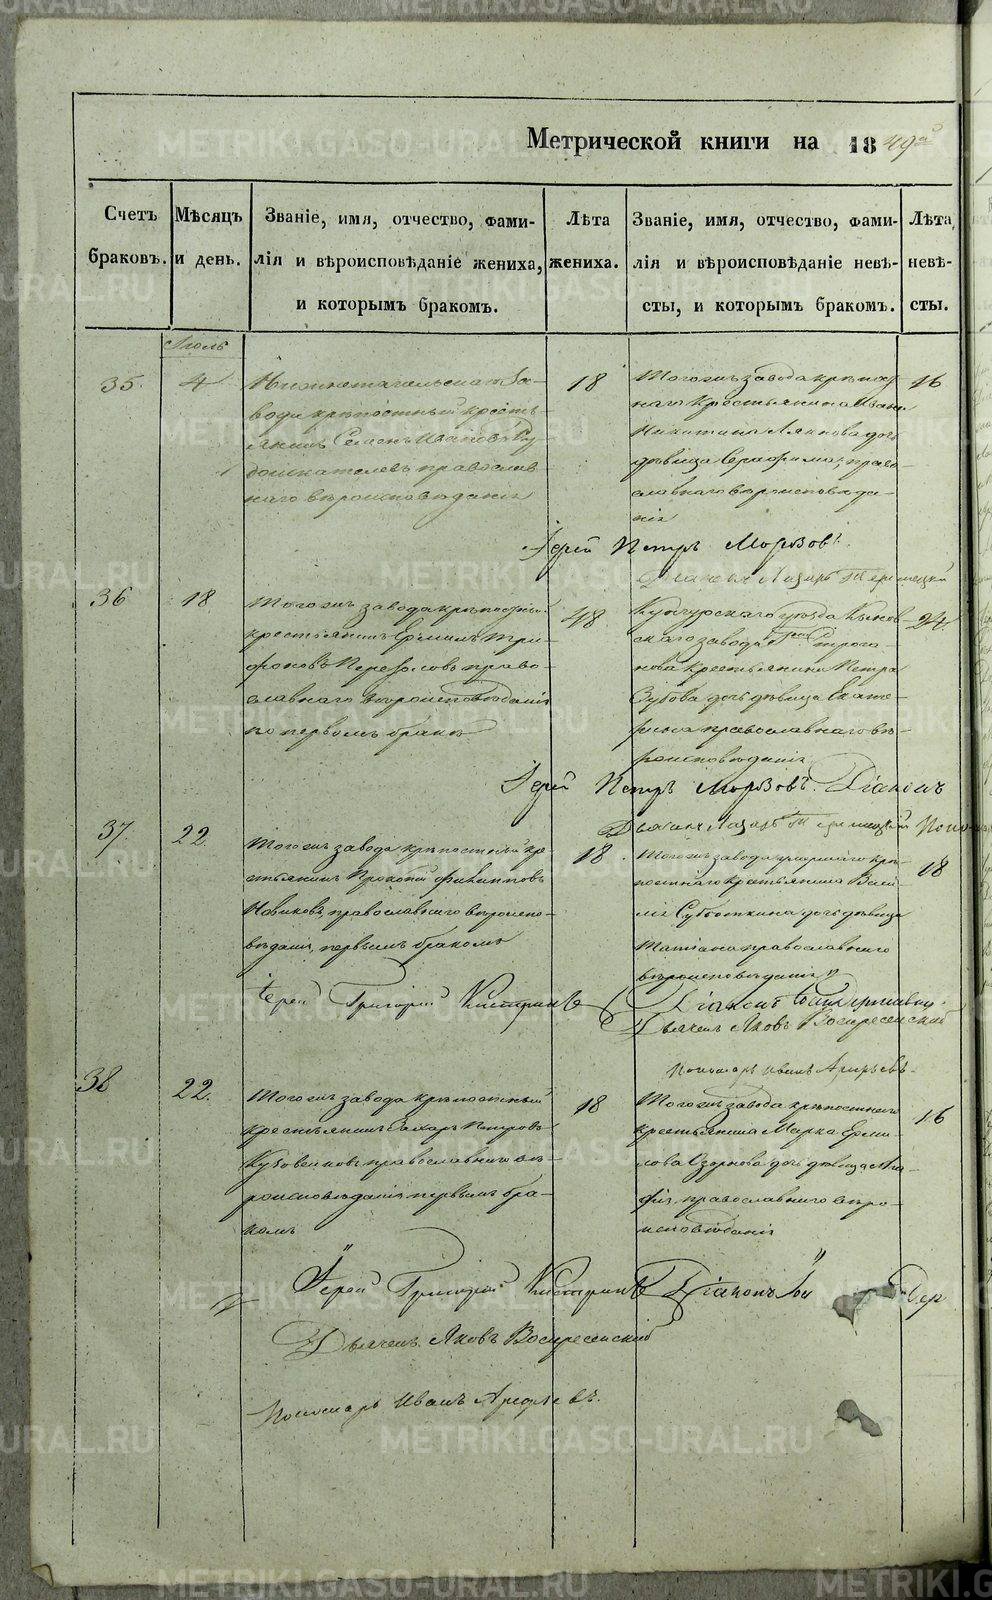 Метрической книги на 1849й
Счетъ браковъ.
Мѣсяцъ и день.
Званіе, имя, отчество, фами-
лія и вѣроисповѣданіе жениха,
и которымъ бракомъ.
Лѣта жениха.
Званіе, имя, отчество, фами-
лія и вѣроисповѣданіе невѣ-
сты, и которымъ бракомъ.
Лѣта невѣ-
сты.
Іюль
35.
4
Нижнетагильскаго за-
вода крѣпостный кресть-
янинъ Семенъ Ивановъ
православ-
наго вѣроисповѣданія
18
Тогожъ завода крѣпост-
наго крестьянина Ивана
Никитина Ляпнова дочь
дѣвица Серафима, право-
славнаго вѣроисповѣда-
нія
16
Іерей Петръ Морозовъ.
Дьячекъ Лазарь
36
18.
Тогожъ завода крѣпостный
крестьянинъ Ермилъ Три-
фоновъ Перезоловъ право-
славнаго вѣроисповѣданія
по первомъ бракѣ
48
Кунгурскаго уѣзда Кынов-
скаго завода Строго-
нова крестьянина Петра
Зубова дочь дѣвица Екате-
рина православнаго вѣ-
роисповѣданія
24.
Іерей Петръ Морозовъ. Діаконъ
Дьячекъ Лазарь
37.
22.
Тогожъ завода крѣпостный кре-
стьянинъ Прокопій Филипповъ
Новиковъ, православнаго вѣроиспо-
вѣданія, первымъ бракомъ
18.
Тогожъ завода умершаго крѣ-
постнаго крестьянина Васи-
лія Субботкина дочь дѣвица
Татіана православнаго
вѣроисповѣданія
18
Іерей Григорій
Діаконъ
Дьячекъ Яковъ Воскресенскій
Пономарь Иванъ Арефьевъ.
38
22.
Тогожъ завода крѣпостный
крестьянинъ Захаръ Петровъ
Кузовенковъ православнаго вѣ-
роисповѣданія первымъ бра-
комъ
18
Тогожъ завода крѣпостнаго
крестьянина Марка Ерми-
лова дочь дѣвица Ага-
фія, православнаго вѣро-
исповѣданія
16
Іерей Григорій
Діаконъ
Дьячекъ Яковъ Воскресенскій
Пономарь Иванъ Арефьевъ.
METRIKI.GASO-URAL.RU